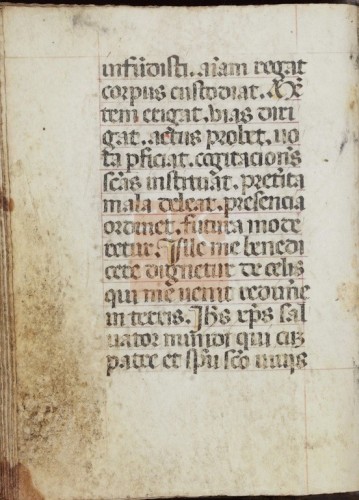 infu̅disti. aı̅am regat
corpus custodiat. Me̅
tem erigat. vias diri
gat. actus probet. uo
ta p̲ficiat. cogitacio̅s
sc̅as instituat. pret̾ita
mala deleat. presencia
ordinet. futura mode
retur. Ip̅e me benedi
cere dignetur de celis
qui me uenit redim̅e
in terris. Ihs xp̅s sal
uator mundi qui cu̅
patre et sp̅u sc̅o uiuis